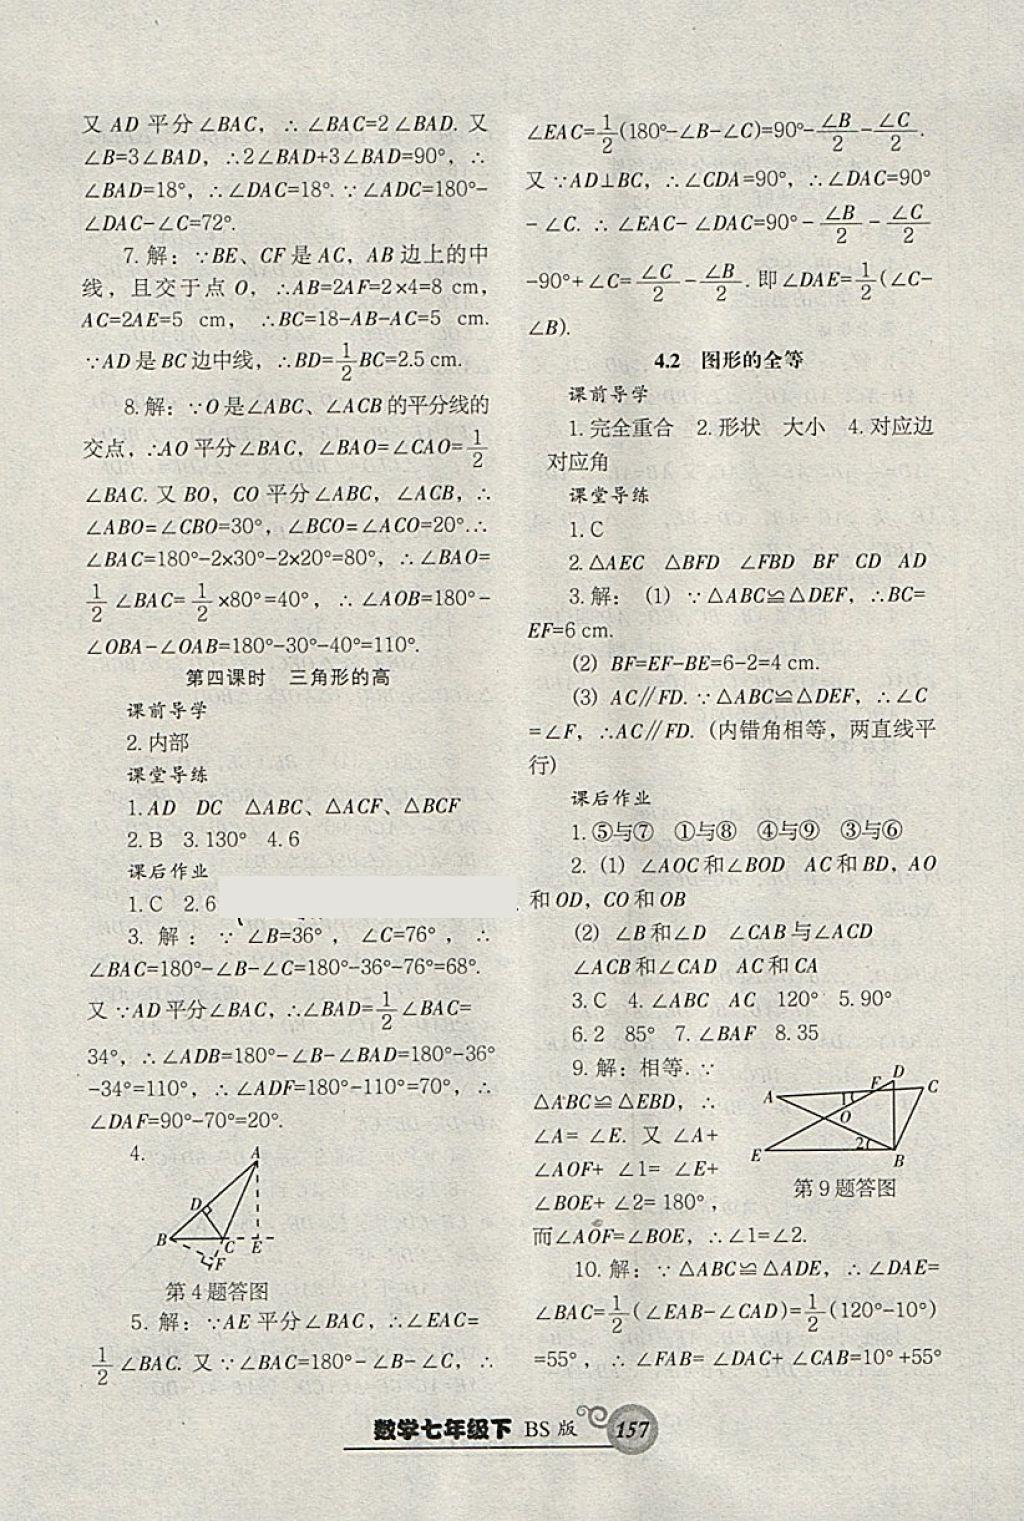 又 AD 平分∠BAC，∴∠BAC=2∠BAD. 又
∠B=3∠BAD，∴2∠BAD+3∠BAD=90°，∴
∠BAD=18°，∴∠DAC=18°. ∵∠ADC=180°-
∠DAC-∠C=72°.
7. 解：∵BE、CF 是 AC，AB 边上的中
线，且交于点 O，∴AB=2AF=2×4=8 cm，
AC=2AE=5 cm，∴BC=18-AB-AC=5 cm.
∵AD 是 BC 边中线，∴BD=1/2BC=2.5 cm.
8. 解：∵O 是∠ABC、∠ACB 的平分线的
交点，∴AO 平分∠BAC，∠BAO=∠CAO=1/2
∠BAC. 又 BO，CO 平分∠ABC，∠ACB，∴
∠ABO=∠CBO=30°，∠BCO=∠ACO=20°.∴
∠BAC=180°-2×30°-2×20°=80°，∴∠BAO=
1/2∠BAC=1/2×80°=40°，∴∠AOB=180°-
∠OBA-∠OAB=180°-30°-40°=110°.
第四课时 三角形的高
课前导学
2. 内部
课堂导练
1. AD DC △ABC、△ACF、△BCF
2. B 3. 130° 4. 6
课后作业
1. C 2. 6
3. 解：∵∠B=36°，∠C=76°，∴
∠BAC=180°-∠B-∠C=180°-36°-76°=68°.
又∵AD 平分∠BAC，∴∠BAD=1/2∠BAC=
34°，∴∠ADB=180°-∠B-∠BAD=180°-36°
-34°=110°，∴∠ADF=180°-110°=70°，∴
∠DAF=90°-70°=20°.
4.
A
D
B
C
E
F
第 4 题答图
5. 解：∵AE 平分∠BAC，∴∠EAC=
1/2∠BAC. 又∵∠BAC=180°-∠B-∠C，∴
∠EAC=1/2(180°-∠B-∠C)=90°-∠B/2-∠C/2.
又∵AD⊥BC，∴∠CDA=90°，∴∠DAC=90°
-∠C. ∴∠EAC-∠DAC=90°-∠B/2-∠C/2
-90°+∠C=∠C/2-∠B/2. 即∠DAE=1/2(∠C-
∠B).
4.2 图形的全等
课前导学
1. 完全重合 2. 形状 大小 4. 对应边
对应角
课堂导练
1. C
2. △AEC △BFD ∠FBD BF CD AD
3. 解：(1) ∵△ABC≌△DEF，∴BC=
EF=6 cm.
(2) BF=EF-BE=6-2=4 cm.
(3) AC∥FD. ∵△ABC≌△DEF，∴∠C
=∠F，∴AC∥FD. (内错角相等，两直线平
行)
课后作业
1. ⑤与⑦ ①与⑧ ④与⑨ ③与⑥
2. (1) ∠AOC 和∠BOD AC 和 BD，AO
和 OD，CO 和 OB
(2) ∠B 和∠D ∠CAB 与∠ACD
∠ACB 和∠CAD AC 和 CA
3. C 4. ∠ABC AC 120° 5. 90°
6. 2 85° 7. ∠BAF 8. 35
9. 解：相等. ∵
△ABC≌△EBD，∴
∠A=∠E. 又∠A+
∠AOF+∠1=∠E+
∠BOE+∠2=180°，
而∠AOF=∠BOE，∴∠1=∠2.
D
F
C
A
1
O
2
E
B
第 9 题答图
10. 解：∵△ABC≌△ADE，∴∠DAE=
∠BAC=1/2(∠EAB-∠CAD)=1/2(120°-10°)
=55°，∴∠FAB=∠DAC+∠CAB=10°+55°
数学七年级下 BS 版 157